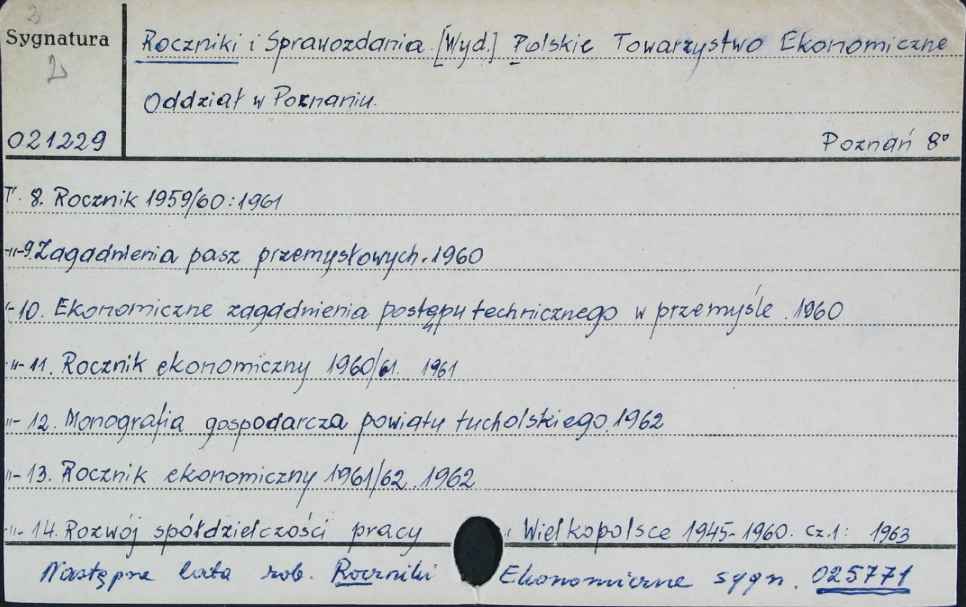 2
Sygnatura
Roczniki i Sprawozdania. [Wyd.] Polskie Towarzystwo Ekonomiczne
Oddział w Poznaniu.
021229
Poznań 8°
T. 8. Rocznik 1959/60:1961
-"-9. Zagadnienia pasz przemysłowych. 1960
-10. Ekonomiczne zagadnienia postępu technicznego w przemyśle. 1960
-"- 11. Rocznik ekonomiczny 1960/61. 1961
-"- 12. Monografia gospodarcza powiatu tucholskiego. 1962
-"- 13. Rocznik ekonomiczny 1961/62. 1962
-"- 14. Rozwój spółdzielczości pracy Wielkopolsce 1945-1960. cz.1: 1963
Następne lata zob. Roczniki Ekonomiczne sygn. 025771